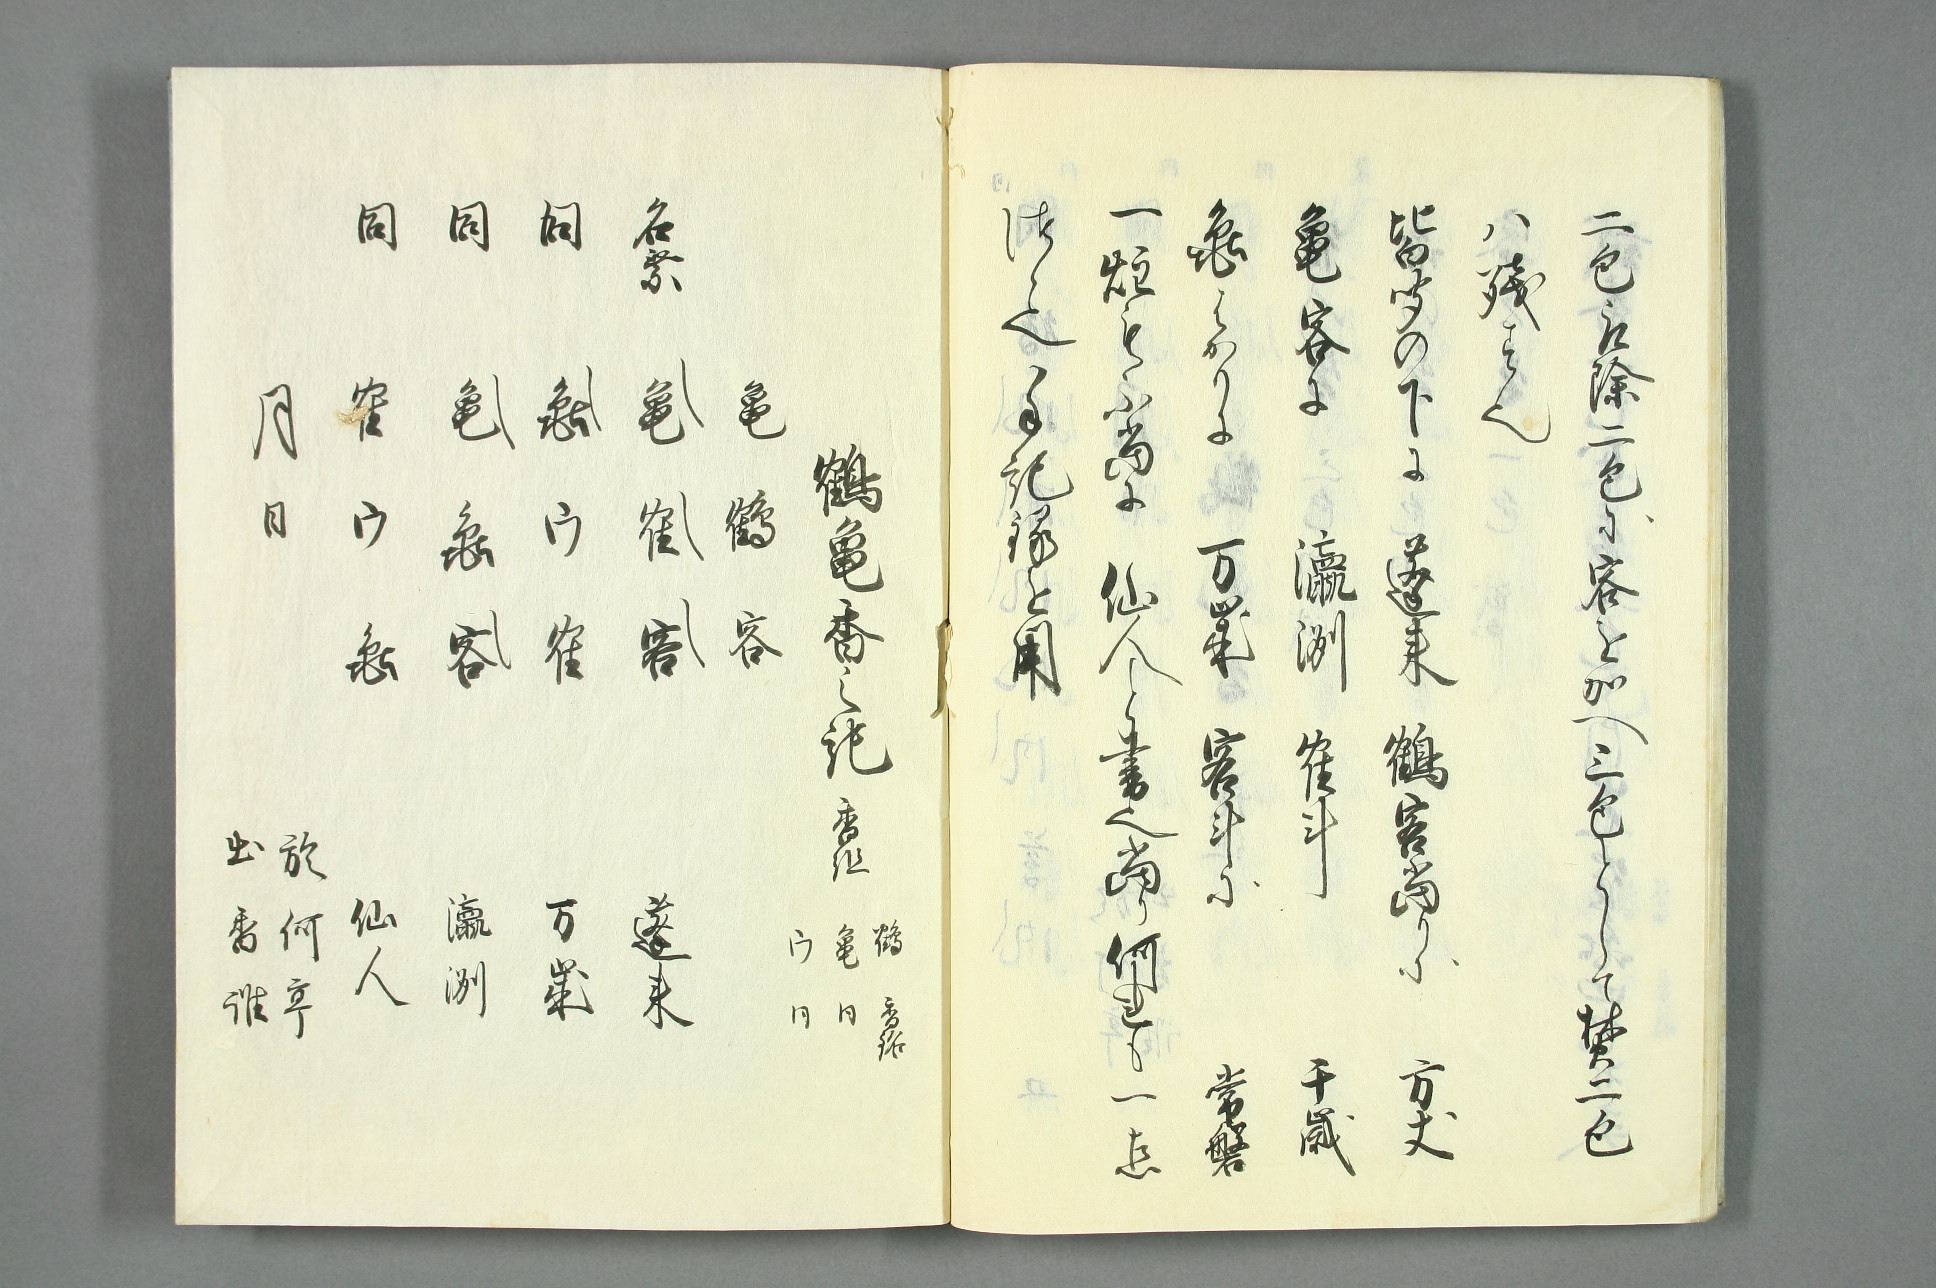 二包取除二包に客を加へ三包として焚二包
ハ残すへし
皆聞の下に　蓬来　鶴客当りに　方丈
亀客に　瀛洲　寉斗　千歳
亀はかりに　万歳　客斗に　常磐
一炷も不当に　仙人と書へし当り何連も一点
つゝ也　記録を用
鶴亀香之記　香組　鶴　香銘
亀　同
ウ　同
亀　鶴　客
名乗　亀　寉　客　蓬来
同　亀　ウ　寉　万歳
同　亀　亀　客　瀛洲
同　寉　ウ　亀　仙人
月　日　於何亭
出香誰